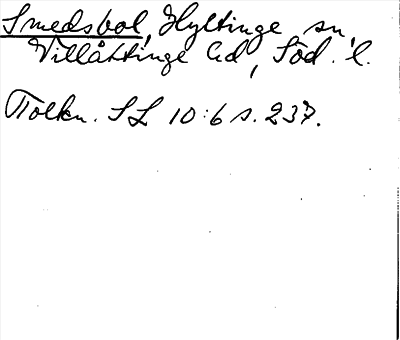 Smedsbol, Hyltinge sn,
Villåttinge hd, Söd. l.
Tolkn. SL 10:6 s. 237.